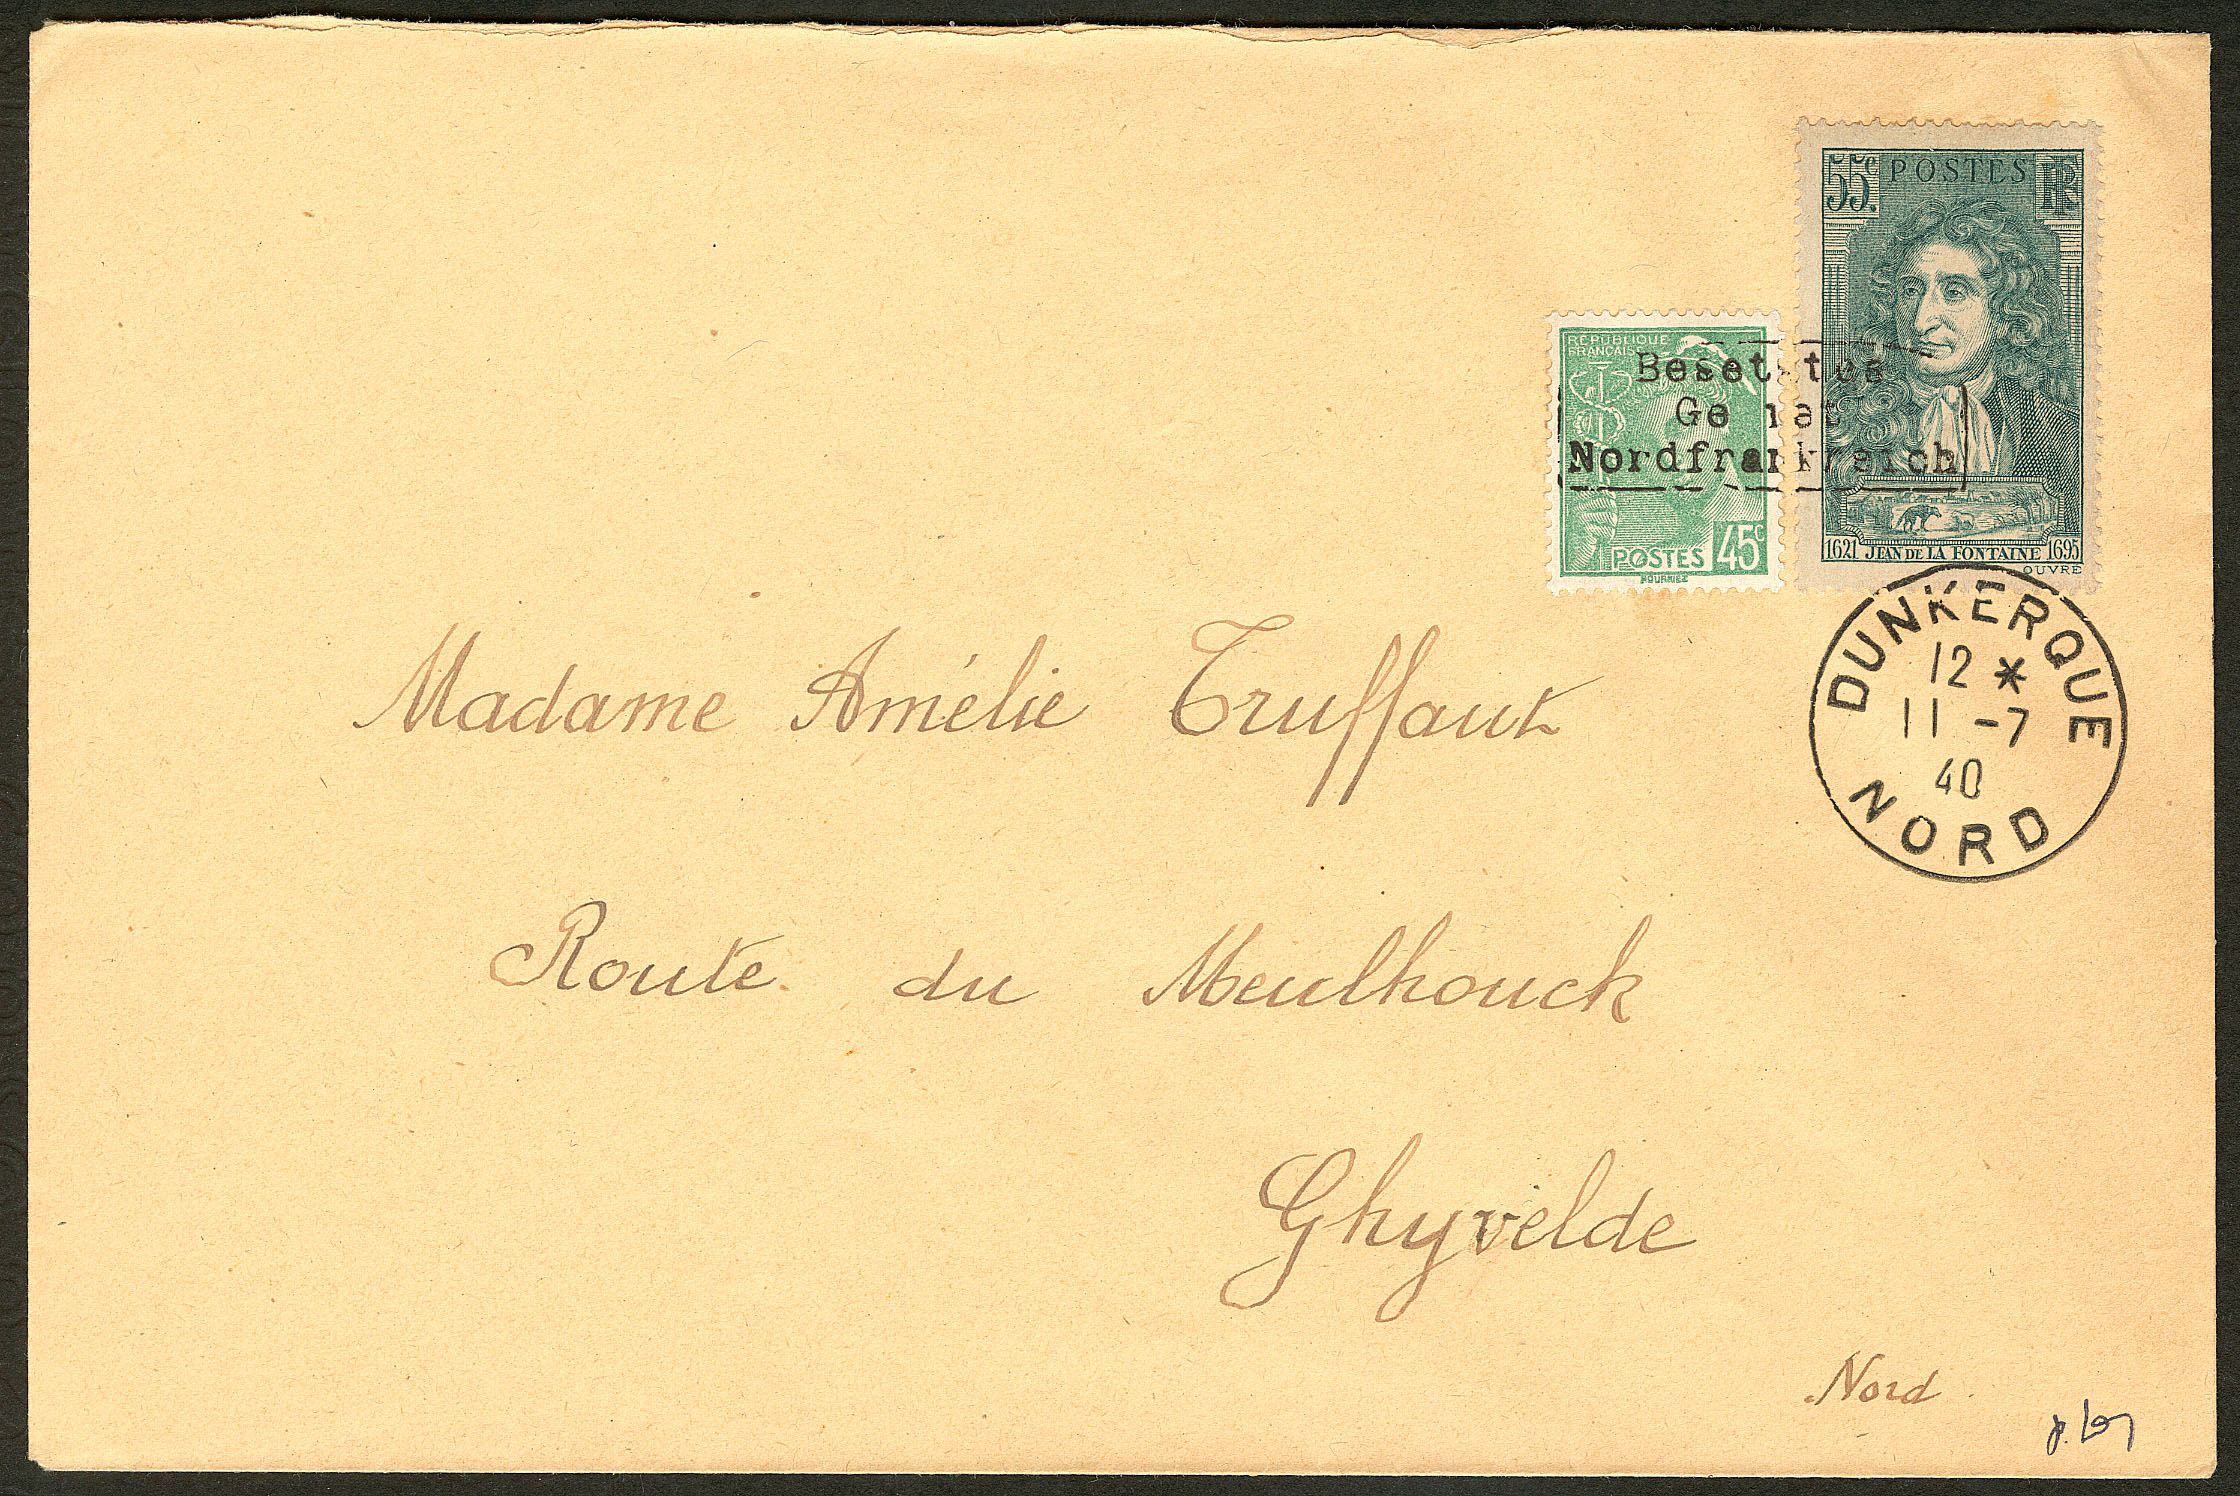 55c. POSTES RF
RÉPUBLIQUE
FRANÇAISE
Besetztes
Gebiet
Nordfrankreich
POSTES 45c
1621 JEAN DE LA FONTAINE 1695
OUVRÉ
DUNKERQUE
12 *
11 -7
40
NORD
Madame Amélie Truffaut
Route du Meulhouck
Ghyvelde
Nord